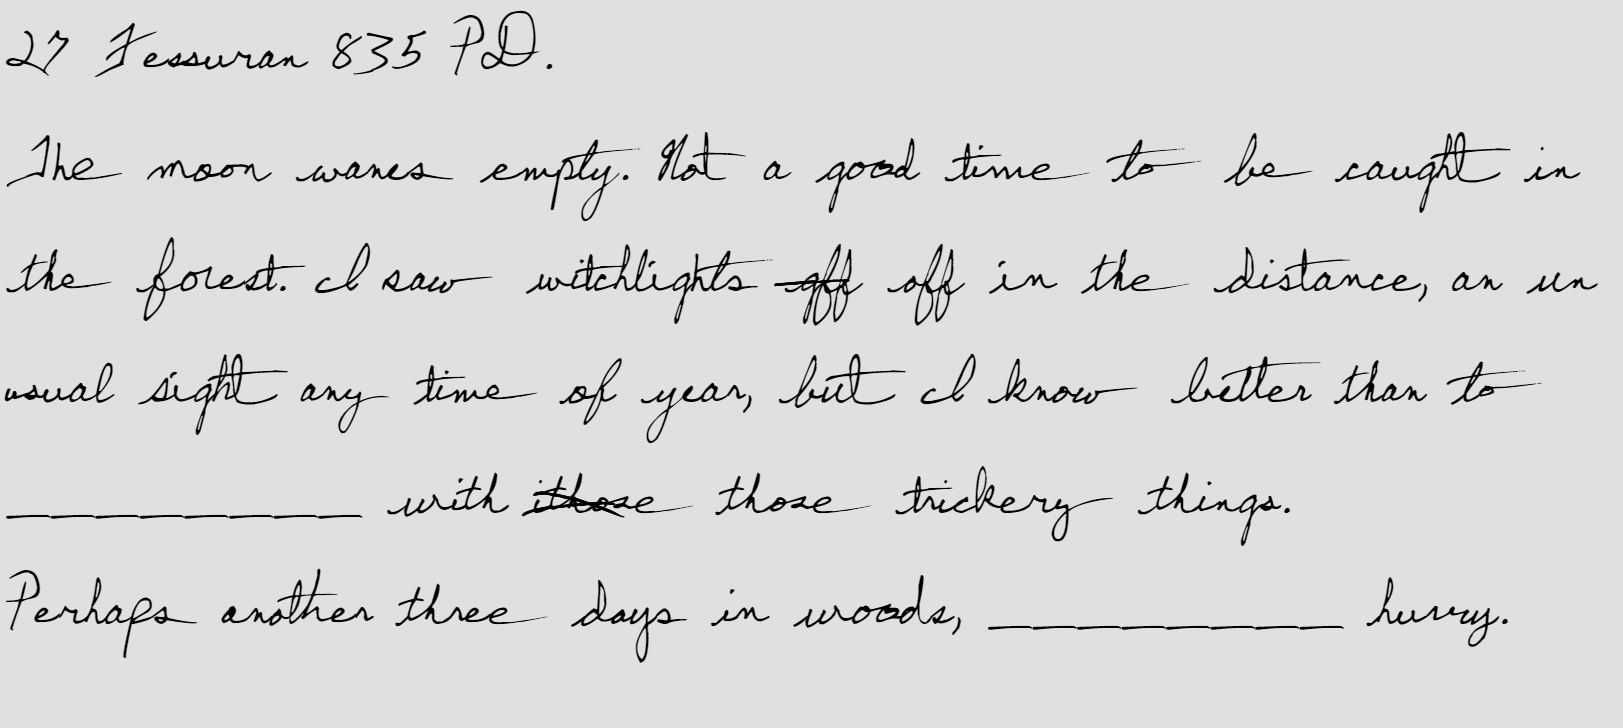 27 Fessuran 835 PD.
The moon wanes empty. Not a good time to be caught in
the forest. I saw witchlights off off in the distance, an un
usual sight any time of year, but I know better than to
_________ with ithose those trickery things.
Perhaps another three days in woods, _________ hurry.